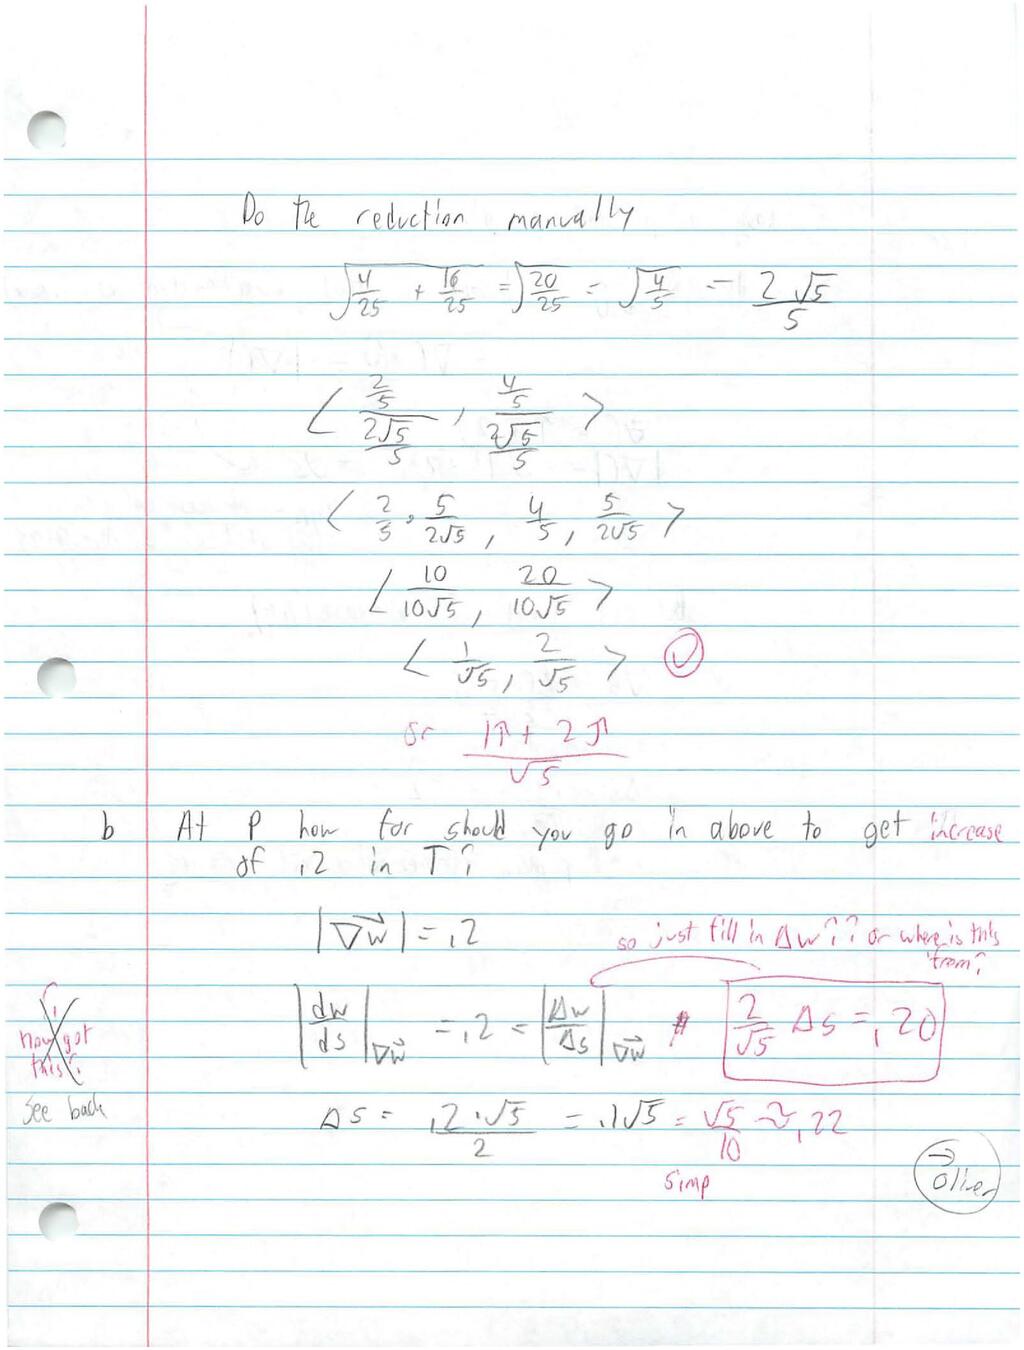 Do the reduction manually
√(4/25 + 16/25) = √(20/25) = √(4/5) = 2√5/5
< (2/5)/(2√5/5) , (4/5)/(2√5/5) >
< 2/5 · 5/2√5 , 4/5 , 5/2√5 >
< 10/10√5 , 20/10√5 >
< 1/√5 , 2/√5 > ✓
or (1î + 2ĵ)/√5
b At P how far should you go in above to get increase
of .2 in T?
|∇w⃗| = .2
so just fill in Δw?? or where is this
from?
|dw/ds|∇w⃗ = .2 = |Δw/Δs|∇w⃗ 2/√5 Δs = .20
how got
this?
See back
Δs = .2·√5/2 = .1√5 = √5/10 ≈ .22
simp
→